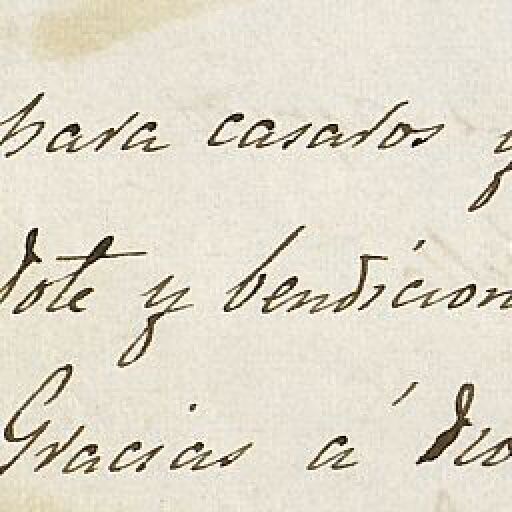 para casados y
dote y bendicion
Gracias á dio